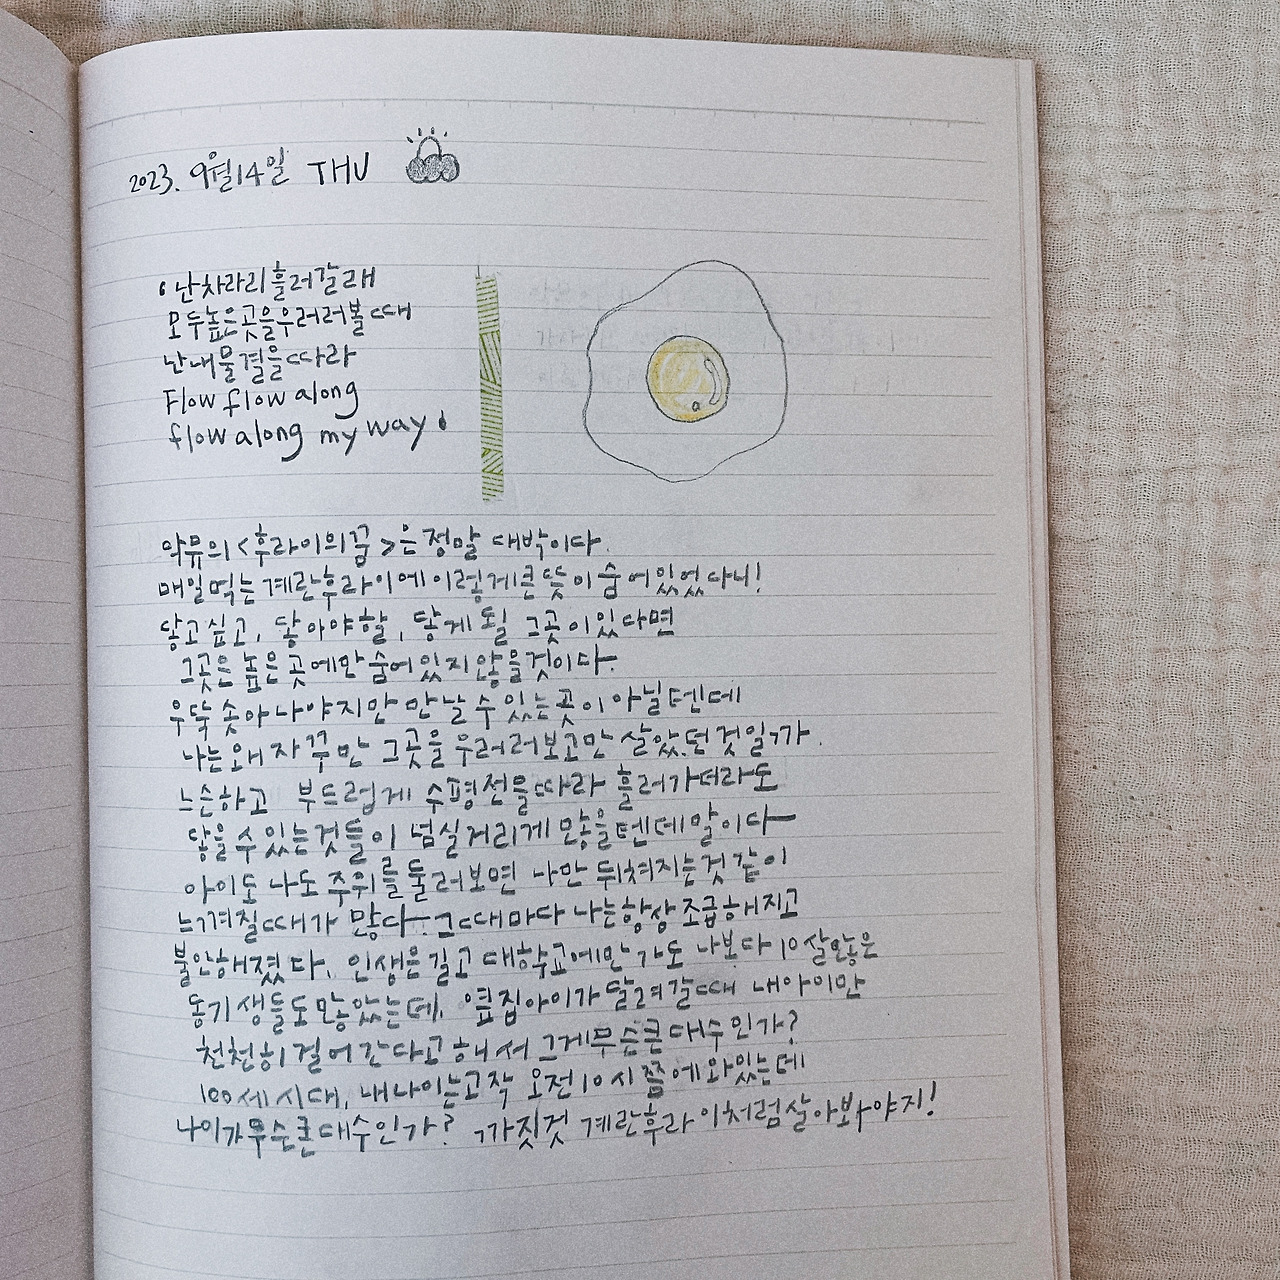 2023. 9월14일 THU
❛난 차라리 흘러갈래
모두 높은 곳을 우러러볼 때
난 내 물결을 따라
Flow flow along
flow along my way❜
악뮤의 <후라이의 꿈>은 정말 대박이다.
매일 먹는 계란후라이에 이렇게 큰 뜻이 숨어있었다니!
닿고 싶고, 닿아야 할, 닿게 될 그곳이 있다면
그곳은 높은 곳에만 숨어 있지 않을 것이다.
우뚝 솟아나야지만 만날 수 있는 곳이 아닐텐데
나는 왜 자꾸만 그곳을 우러러보고만 살았던 것일까.
느슨하고 부드럽게 수평선을 따라 흘러가더라도
닿을 수 있는 것들이 넘실거리게 많을텐데 말이다
아이도 나도 주위를 둘러보면 나만 뒤쳐지는 것 같이
느껴질 때가 많다. 그때마다 나는 항상 조급해지고
불안해졌다. 인생은 길고 대학교에만 가도 나보다 10살 많은
동기생들도 많았는데, 옆집 아이가 달려갈 때 내 아이만
천천히 걸어간다고 해서 그게 무슨 큰 대수인가?
100세 시대, 내 나이는 고작 오전 10시쯤에 와있는데
나이가 무슨 큰 대수인가? 까짓것 계란후라이처럼 살아봐야지!